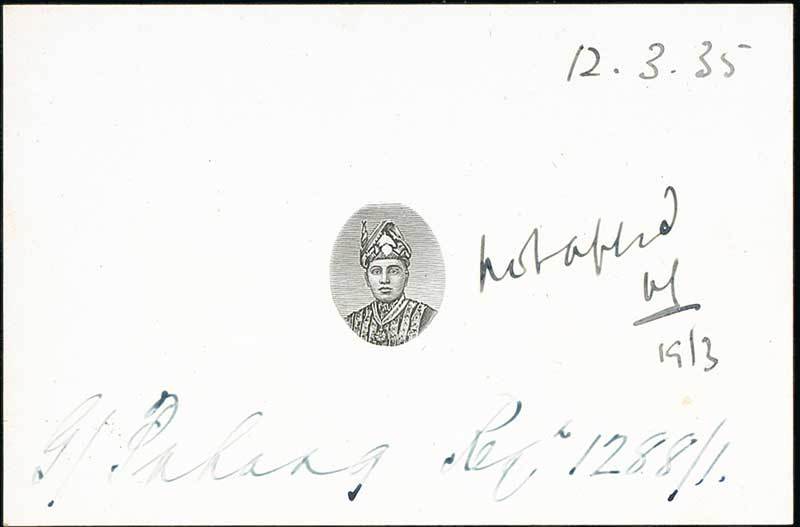 12.3.35
not appd
19/3
G/ Pahang Reqn 1288/1.